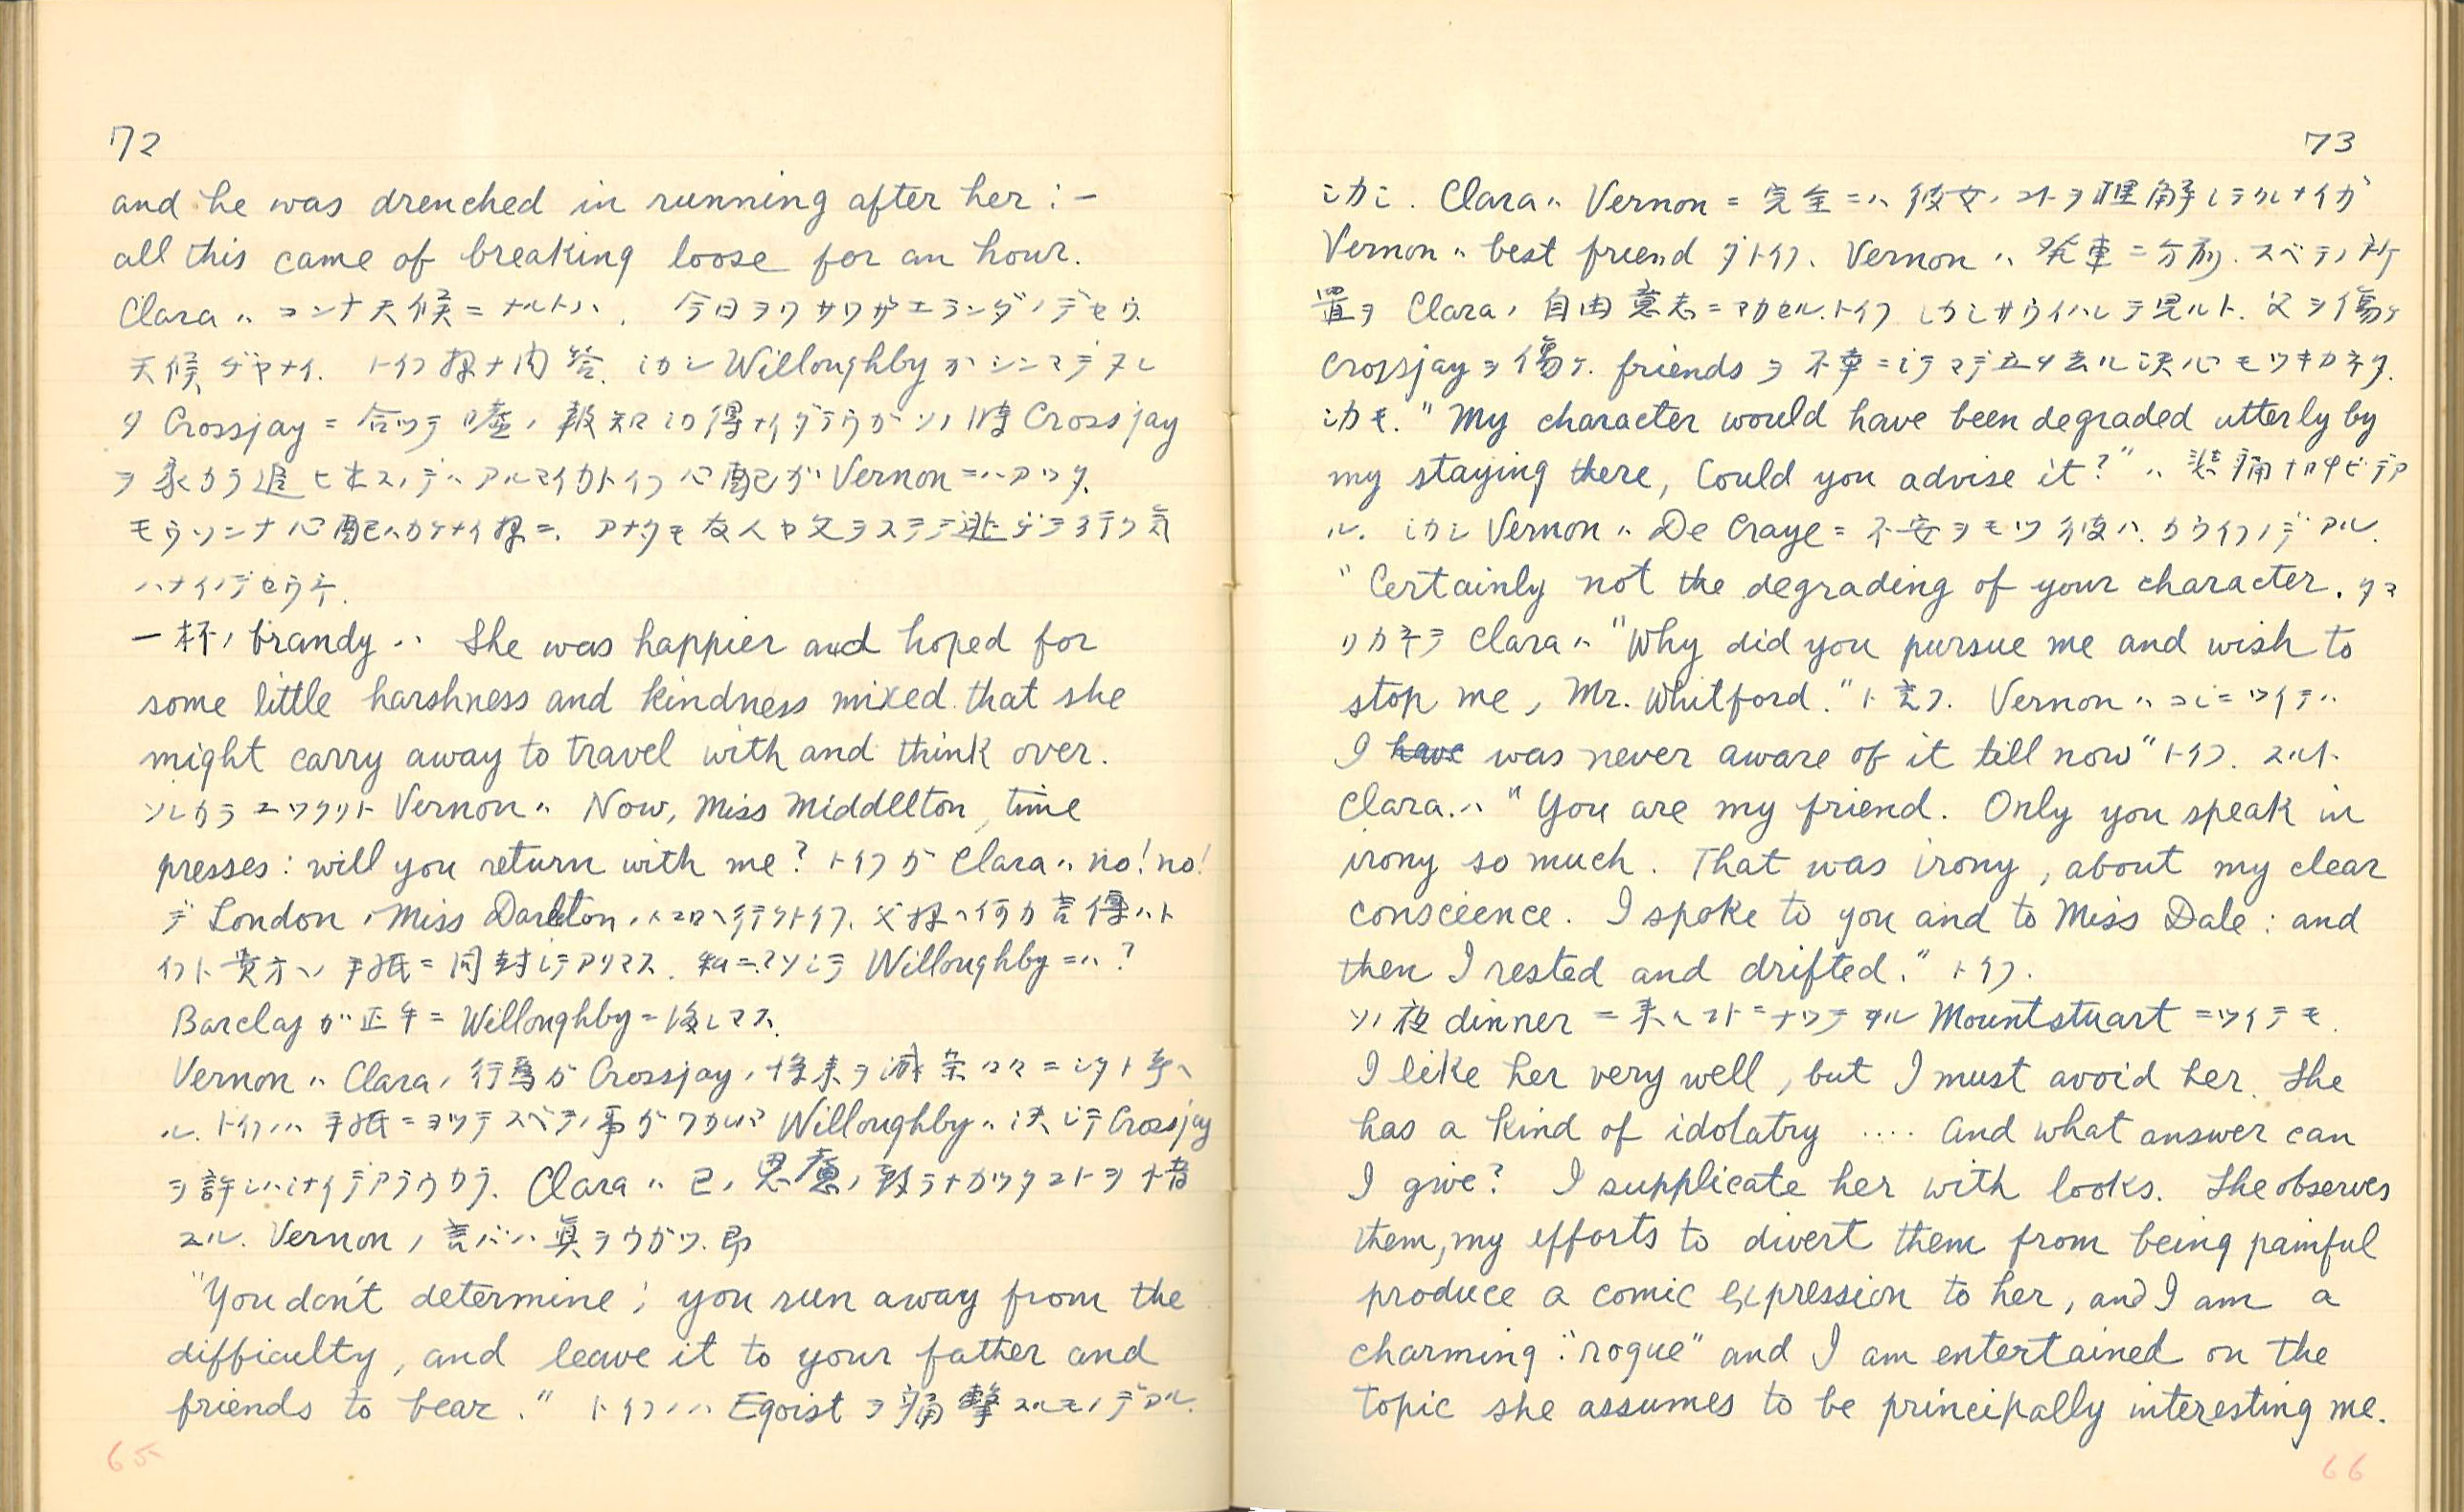 72
and he was drenched in running after her : –
all this came of breaking loose for an hour.
Clara ハ コンナ天候ニナルトハ. 今日ヲワザワザエランダノデセウ
天候ヂヤナイ. トイフ様ナ内答. シカシ Willoughby ガ シンマデヌレ
タ Crossjay ニ合ッテ嘘ノ報知シカ得ナイダラウガソノ時 Crossjay
ヲ家カラ追ヒ出スノデハアルマイカトイフ心配ガ Vernon ニハアッタ.
モウソンナ心配ハカケナイ様ニ. アナタモ友人ヤ父ヲステテ逃ゲテ行ク気
ハナイノデセウネ.
一杯ノ brandy ハ She was happier and hoped for
some little harshness and kindness mixed that she
might carry away to travel with and think over.
ソレカラユックリト Vernon ハ Now, Miss Middleton, time
presses : will you return with me? トイフガ Clara ハ no! no!
デ London ノ Miss Darleton ノトコロヘ行クトイフ. 父様ヘ何カ言傳ハト
イフト貴方ヘノ手紙ニ同封シテアリマス. ソシテ Willoughby ニハ?
Barclay ガ正午ニ Willoughby ニ渡シマス.
Vernon ハ Clara ノ行爲ガ Crossjay ノ将来ヲ滅茶々々ニシタト考ヘ
ル. トイフノハ手紙ニヨッテスベテノ事ガワカレバ Willoughby ハ決シテ Crossjay
ヲ許シハシナイデアラウカラ. Clara ハ己ノ思慮ノ致ラナカッタコトヲ惜
スル. Vernon ノ言バハ眞ヲウガツ. 即
"You don't determine; you run away from the
difficulty, and leave it to your father and
friends to bear." トイフノハ Egoist ヲ痛撃スルモノデアル.
65
73
シカシ. Clara ハ Vernon ニ完全ニハ彼女ノコトヲ理解シテクレナイガ
Vernon ハ best friend ダトイフ. Vernon ハ発車ニ分別. スベテノ所
置ヲ Clara ノ自由意志ニマカセル. トイフ シカシサウイハレテ見ルト. 父ヲ傷ケ
Crossjay ヲ傷ケ. friends ヲ不幸ニシテマデ立チ去ル決心モツキカネタ.
シカモ. "My character would have been degraded utterly by
my staying there, Could you advise it?" ハ悲痛ナ叫ビデア
ル. シカシ Vernon ハ De Craye ニ不安ヲモツ彼ハ. カウイフノデアル.
"Certainly not the degrading of your character. タマ
リカネテ Clara ハ "Why did you pursue me and wish to
stop me, Mr. Whitford." ト言フ. Vernon ハコレニツイテハ
I have was never aware of it till now" トイフ. スルト
Clara. ハ "You are my friend. Only you speak in
irony so much. That was irony, about my clear
conscience. I spoke to you and to Miss Dale : and
then I rested and drifted." トイフ.
ソノ夜 dinner ニ来ルコトニナッテヰル Mountstuart ニツイテモ.
I like her very well, but I must avoid her. She
has a kind of idolatry .... And what answer can
I give? I supplicate her with looks. She observes
them, my efforts to divert them from being painful
produce a comic expression to her, and I am a
charming "rogue" and I am entertained on the
topic she assumes to be principally interesting me.
66